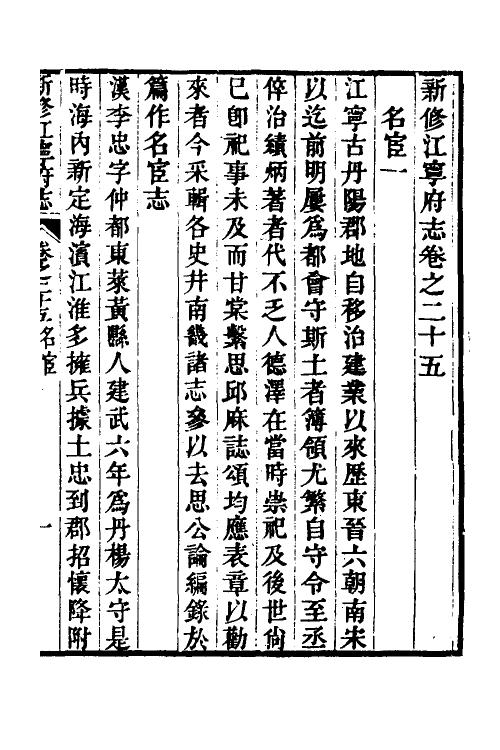 新修江寧府志卷之二十五
名宦一
江寧古丹陽郡地自移治建業以來歷東晉六朝南宋
以迄前明屢爲都會守斯土者簿領尤繁自守令至丞
倅治績炳著者代不乏人德澤在當時崇祀及後世尙
已卽祀事未及而甘棠繫思邱麻誌頌均應表章以勸
來者今采輯各史幷南畿諸志參以去思公論編錄於
篇作名宦志
漢李忠字仲都東萊黃縣人建武六年爲丹楊太守是
時海內新定海濱江淮多擁兵據土忠到郡招懷降附
新修江寧府志 卷之二十五名宦 一